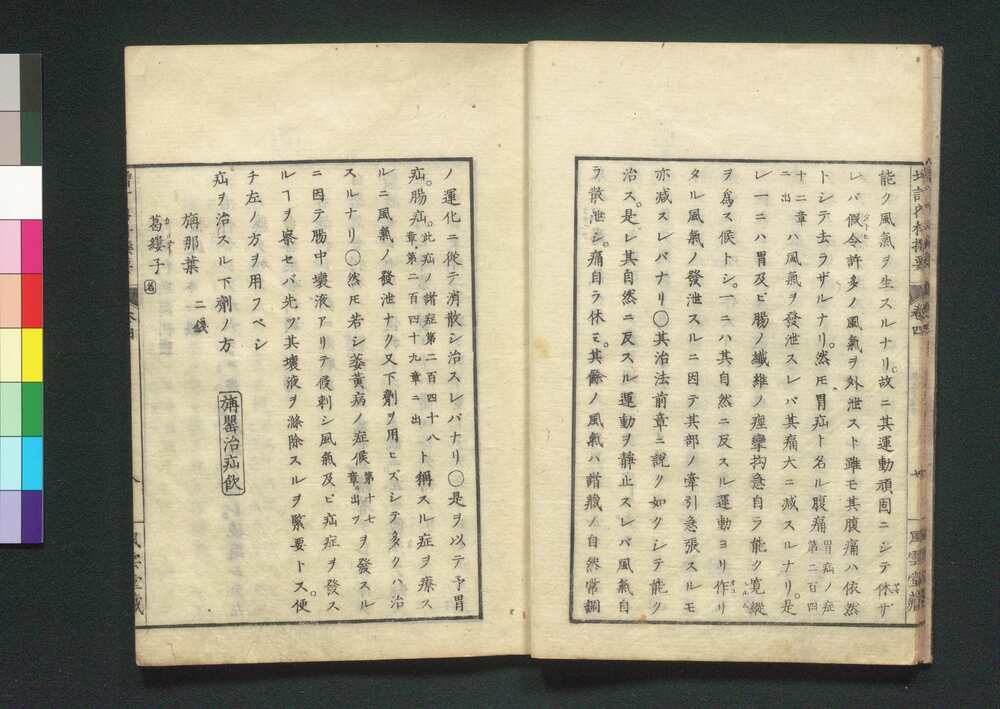 能ク風氣ヲ生スルナリ。故ニ其運動頑固ニシテ休ザ
レバ假令許多ノ風氣ヲ外泄スト雖モ其腹痛ハ依然
トシテ去ラザルナリ。然𪜈胃疝ト名ル腹痛胃疝ノ症第二百四
十二章ニ出ハ風氣ヲ發泄スレバ其痛大ニ減スルナリ。是
レ一ニハ胃及ビ腸ノ纖維ノ痙攣拘急自ラ能ク寛縱
ヲ爲ス候トシ。一ニハ其自然ニ反スル運動ヨリ作リ
タル風氣ノ發泄スルニ因テ其部ノ牽引急張スルモ
亦減スレバナリ〇其治法前章ニ說ク如クシテ能ク
治ス。是レ其自然ニ反スル運動ヲ靜止スレバ風氣自
ラ散泄シ。痛自ラ休ミ。其餘ノ風氣ハ諸藏ノ自然常調
卷四
風雲堂藏
ノ運化ニ從テ消散シ治スレバナリ〇是ヲ以テ予胃
疝。腸疝。此疝ノ諸症第二百四十八章。第二百四十九章ニ出ト稱スル症ヲ療ス
ルニ風氣ノ發泄ナク又下劑ヲ用ヒズシテ多クハ治
スルナリ〇然𪜈若シ萎黃病ノ症候第十七章ニ出ヅヲ發スル
ニ因テ腸中壞液アリテ侵刺シ風氣及ビ疝症ヲ發ス
ルヿヲ察セバ先ヅ其壞液ヲ滌除スルヲ緊要トス。便
チ左ノ方ヲ用フベシ
疝ヲ治スル下劑ノ方 旃罌治疝飮
旃那葉 二錢
葛縷子